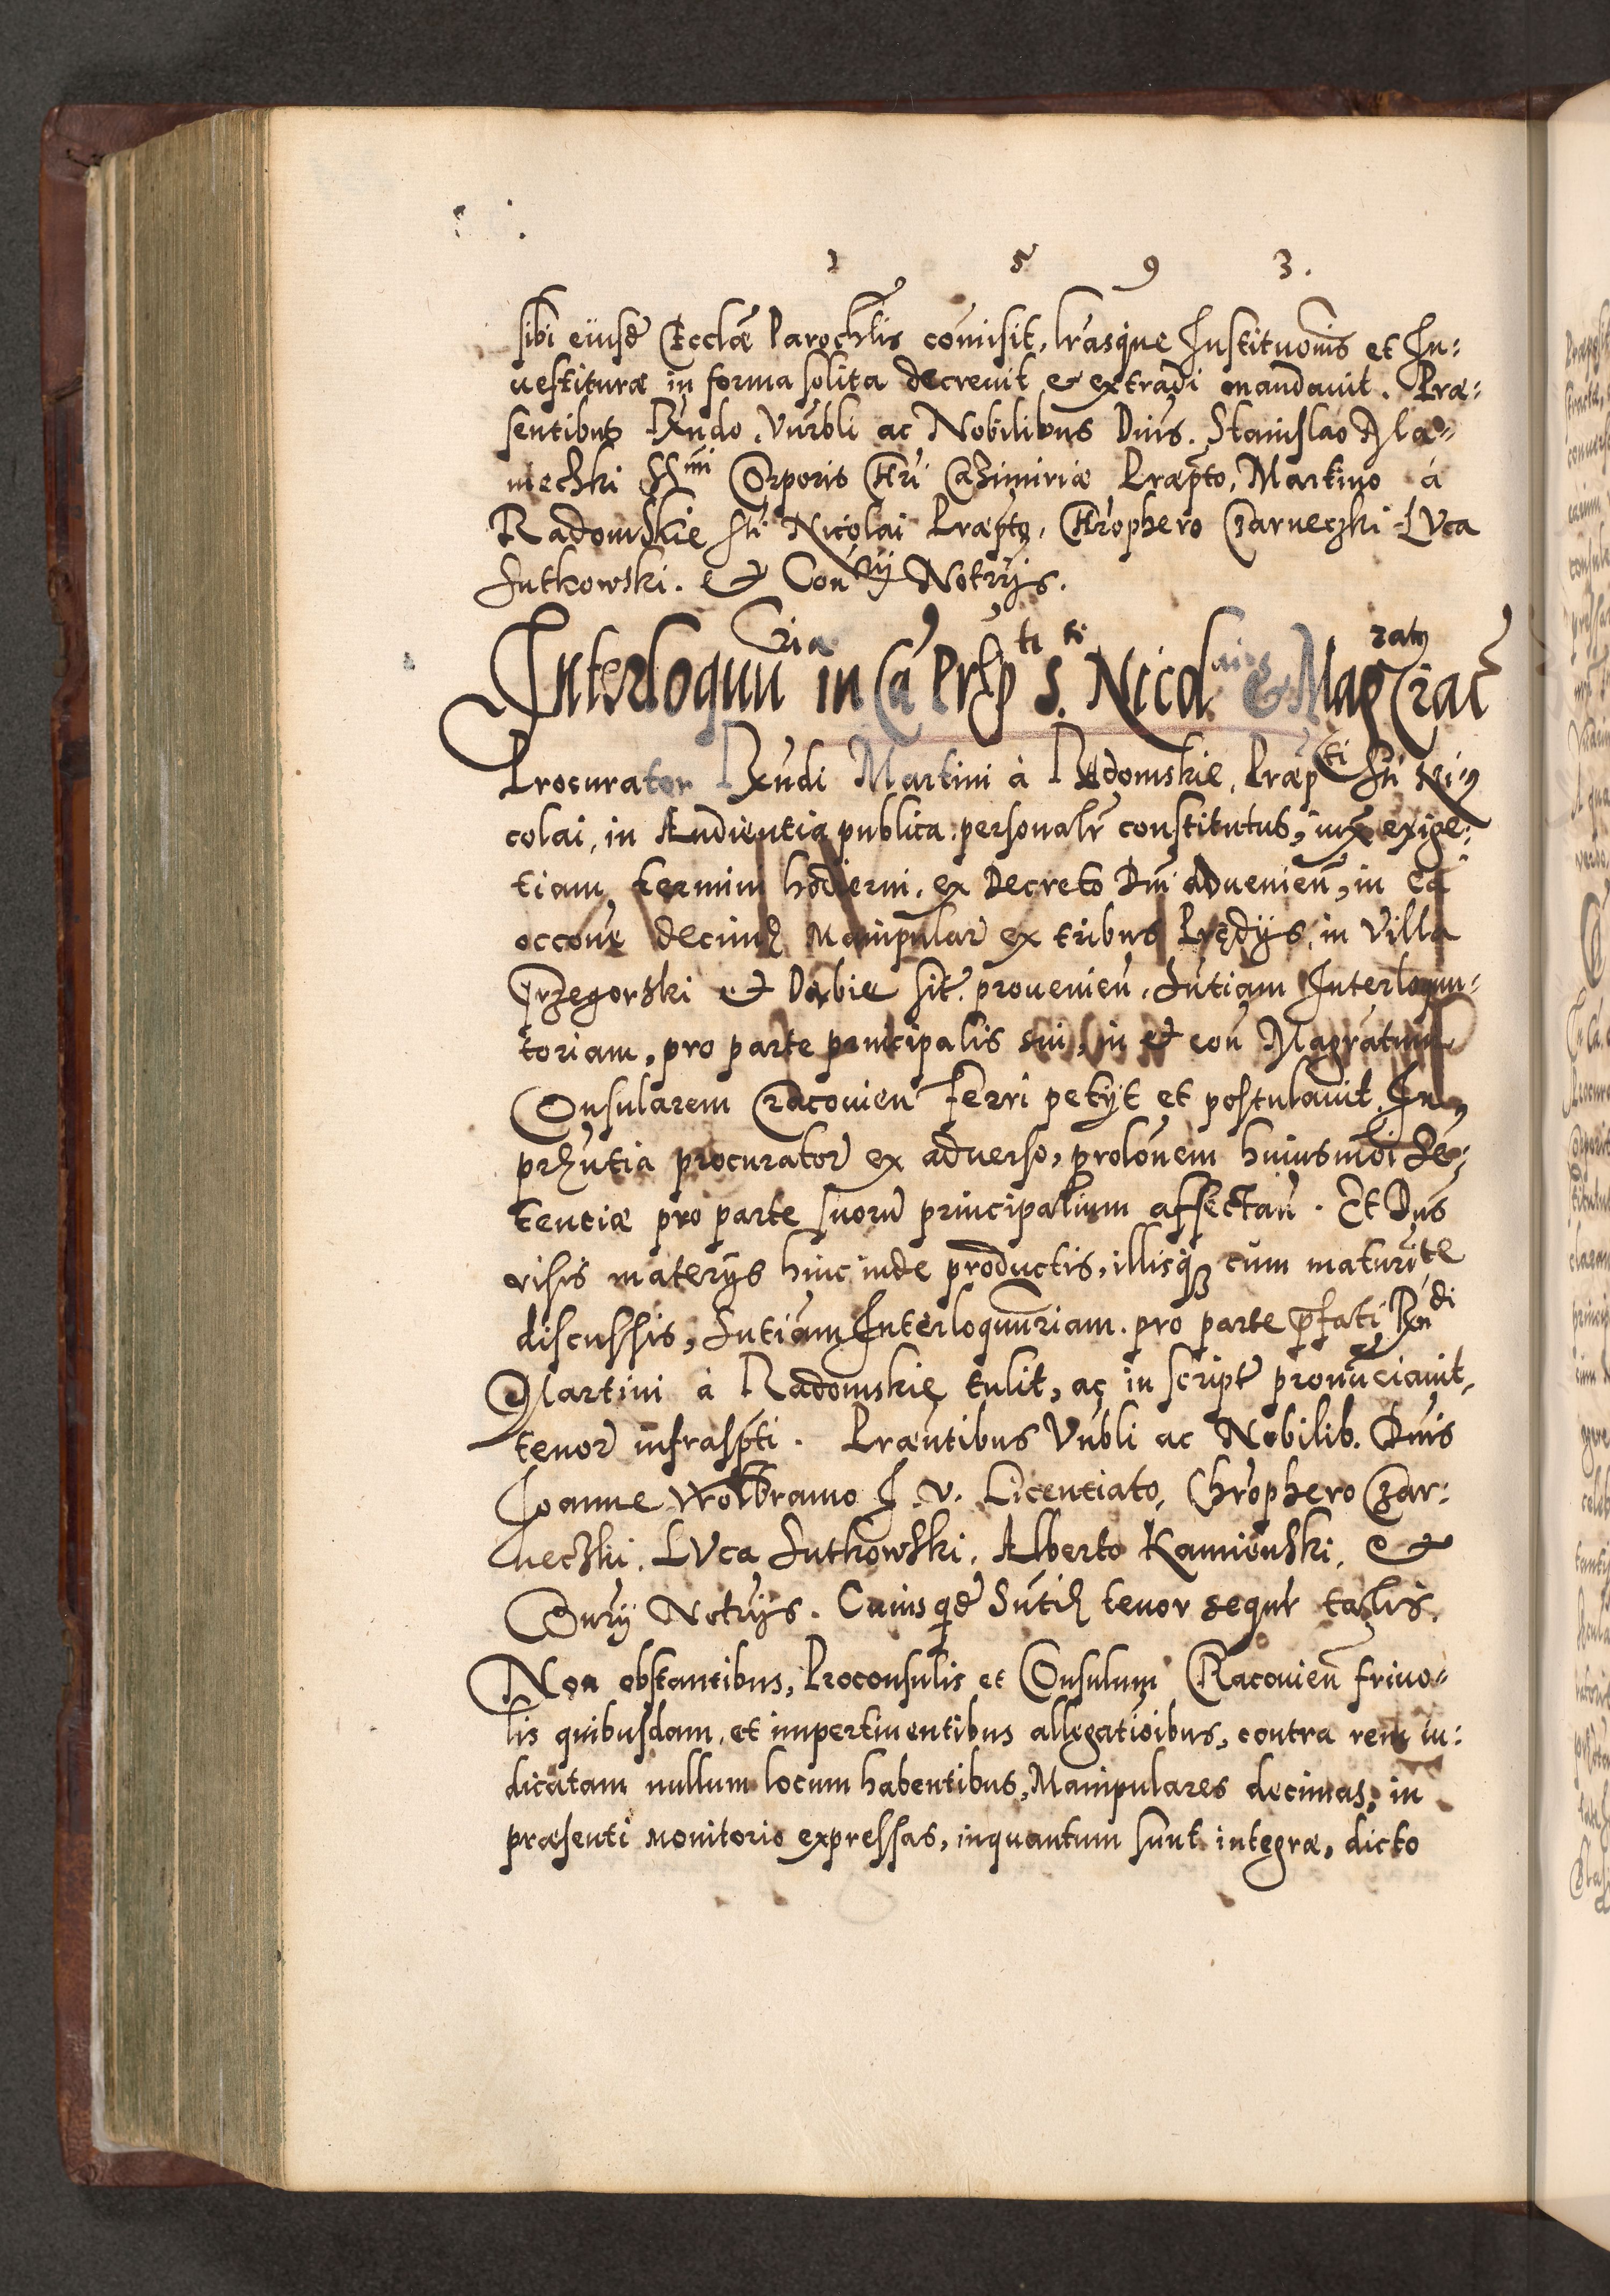 1 5 9 3.
sibi eiusd Ecclae Parochlis comisit, lrasque Institutionis et In-
uestiturae in forma solita decreuit et extradi mandauit. Prae-
sentibus Rndo, Vnrbli ac Nobilibus Dnis. Stanislao
SSmi Corporis Chri Casimiriae Praepto, Martino à
Radomskie sti Nicolai Praepto, Chrophero Czarneczki Luca
Sutkowski. et Con Notrijs.
Interloquuria in Ca Prepti S. ti Nicolai & Magratu Crac
Procurator Rndi Martini à Radomskie, Praepti sti Ni-
colai, in Audientia publica personalr constitutus, iux exige-
tiam termini hodierni, ex Decreto Dni aduenien, in Ca
occone decimar Manipular ex tribus Prędijs, in Villa
Grzegorzki et Dąbie sit. prouenien. Sntiam Interloquu-
toriam, pro parte principalis sui, in et con Magratum
Consularem Cracouien ferri petijt et postulauit. In
prntia procurator ex aduerso, prolonem huiusmoi Se-
tentiae pro parte suorum principalium affectan. Et Dns
visis materijs hinc inde productis, illisq cum maturite
discussis, Sntiam Interloquuriam pro parte pfati Rndi
Martini à Radomskie tulit, ac in script pronuciauit,
tenor infraspti. Praentibus Vnbli ac Nobilib. Dnis
Joanne Wolbramo J. V. Licentiato, Chrophero Czar-
neczki, Luca Sutkowski, Alberto Kamieński, et
Notrijs. Cuiusqd Sntiae tenor sequr talis.
Non obstantibus, Proconsulis et Consulum Cracouien friuo-
lis quibusdam, et impertinentibus allegatioibus, contra rem iu-
dicatam nullum locum habentibus, Manipulares decimas, in
praesenti monitorio expressas, inquantum sunt integrae, dicto